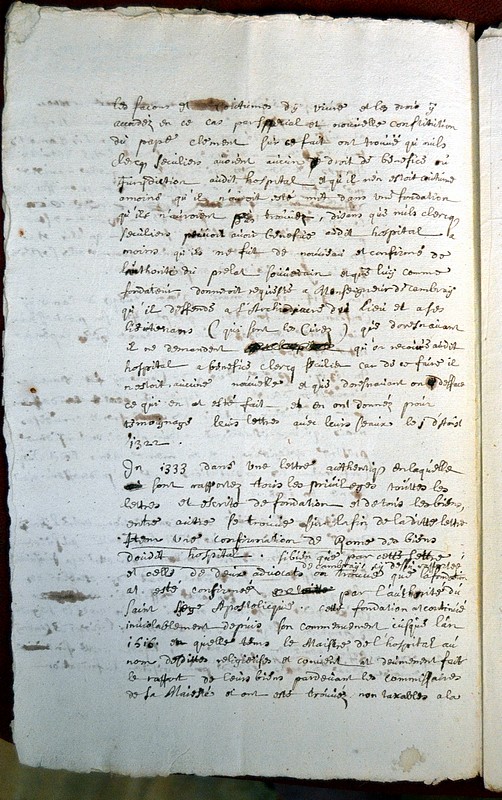 les facons et coutumes d'y vivre et les drois y
accordez en ce cas par special et nouvelle constitution
du pape clement sur ce fait ont trouvé qu nuls
clercq seculiers avoient aucuns droit de benefice ou
Jurisdiction audit hospital et qu'il n'en estoit
amoins qu'il avoit esté mis dans une fondation
qu'ils n'avoient pas trouvée, disans que nuls clercq
seculiers avoir benefice audit hospital a
moins qu'ils ne fut de nouveau et confirmé de
l'authorité du prelat souverain et que luy comme
fondateur donneroit requeste a Monseigneur de Cambray
qu'il deffende a l'Archidiacre du lieu et a ses
lieutenans (qui sont les Curez) que doresnavant
il ne demandent qu'on recoive audit
hospital a benefice clercq seculier car de ce faire il
n'estoit aucune nouvelle et que doresnavant on desface
ce qui en at esté fait et en ont donnéz pour
temoignage leurs lettres avec leurs seaux le
1322.
In 1333 dans une lettre authenticq en laquelle
sont rapportez tous les privileges touttes les
lettres et escrits de fondation et de tous les biens,
entre autre se trouve sur la fin de la ditte lettre
Item une confirmation de Rome des biens
doudit hospital. sibien que par cette lettre
de cambray cy dessus rapportee
et celle de deux advocats on trouve que la fondation
at esté confirmée par l'authorité du
saint siege Apostolicque. cette fondation at continué
inviolablement depuis son commencement jusque l'an
1515 en quelle tems le Maistre de l'hospital au
nom desdittes religieuses et couvent at deuement fait
le rapport de leurs biens pardevant les commissaires
de sa Majesté et ont esté trouvez non taxables a la